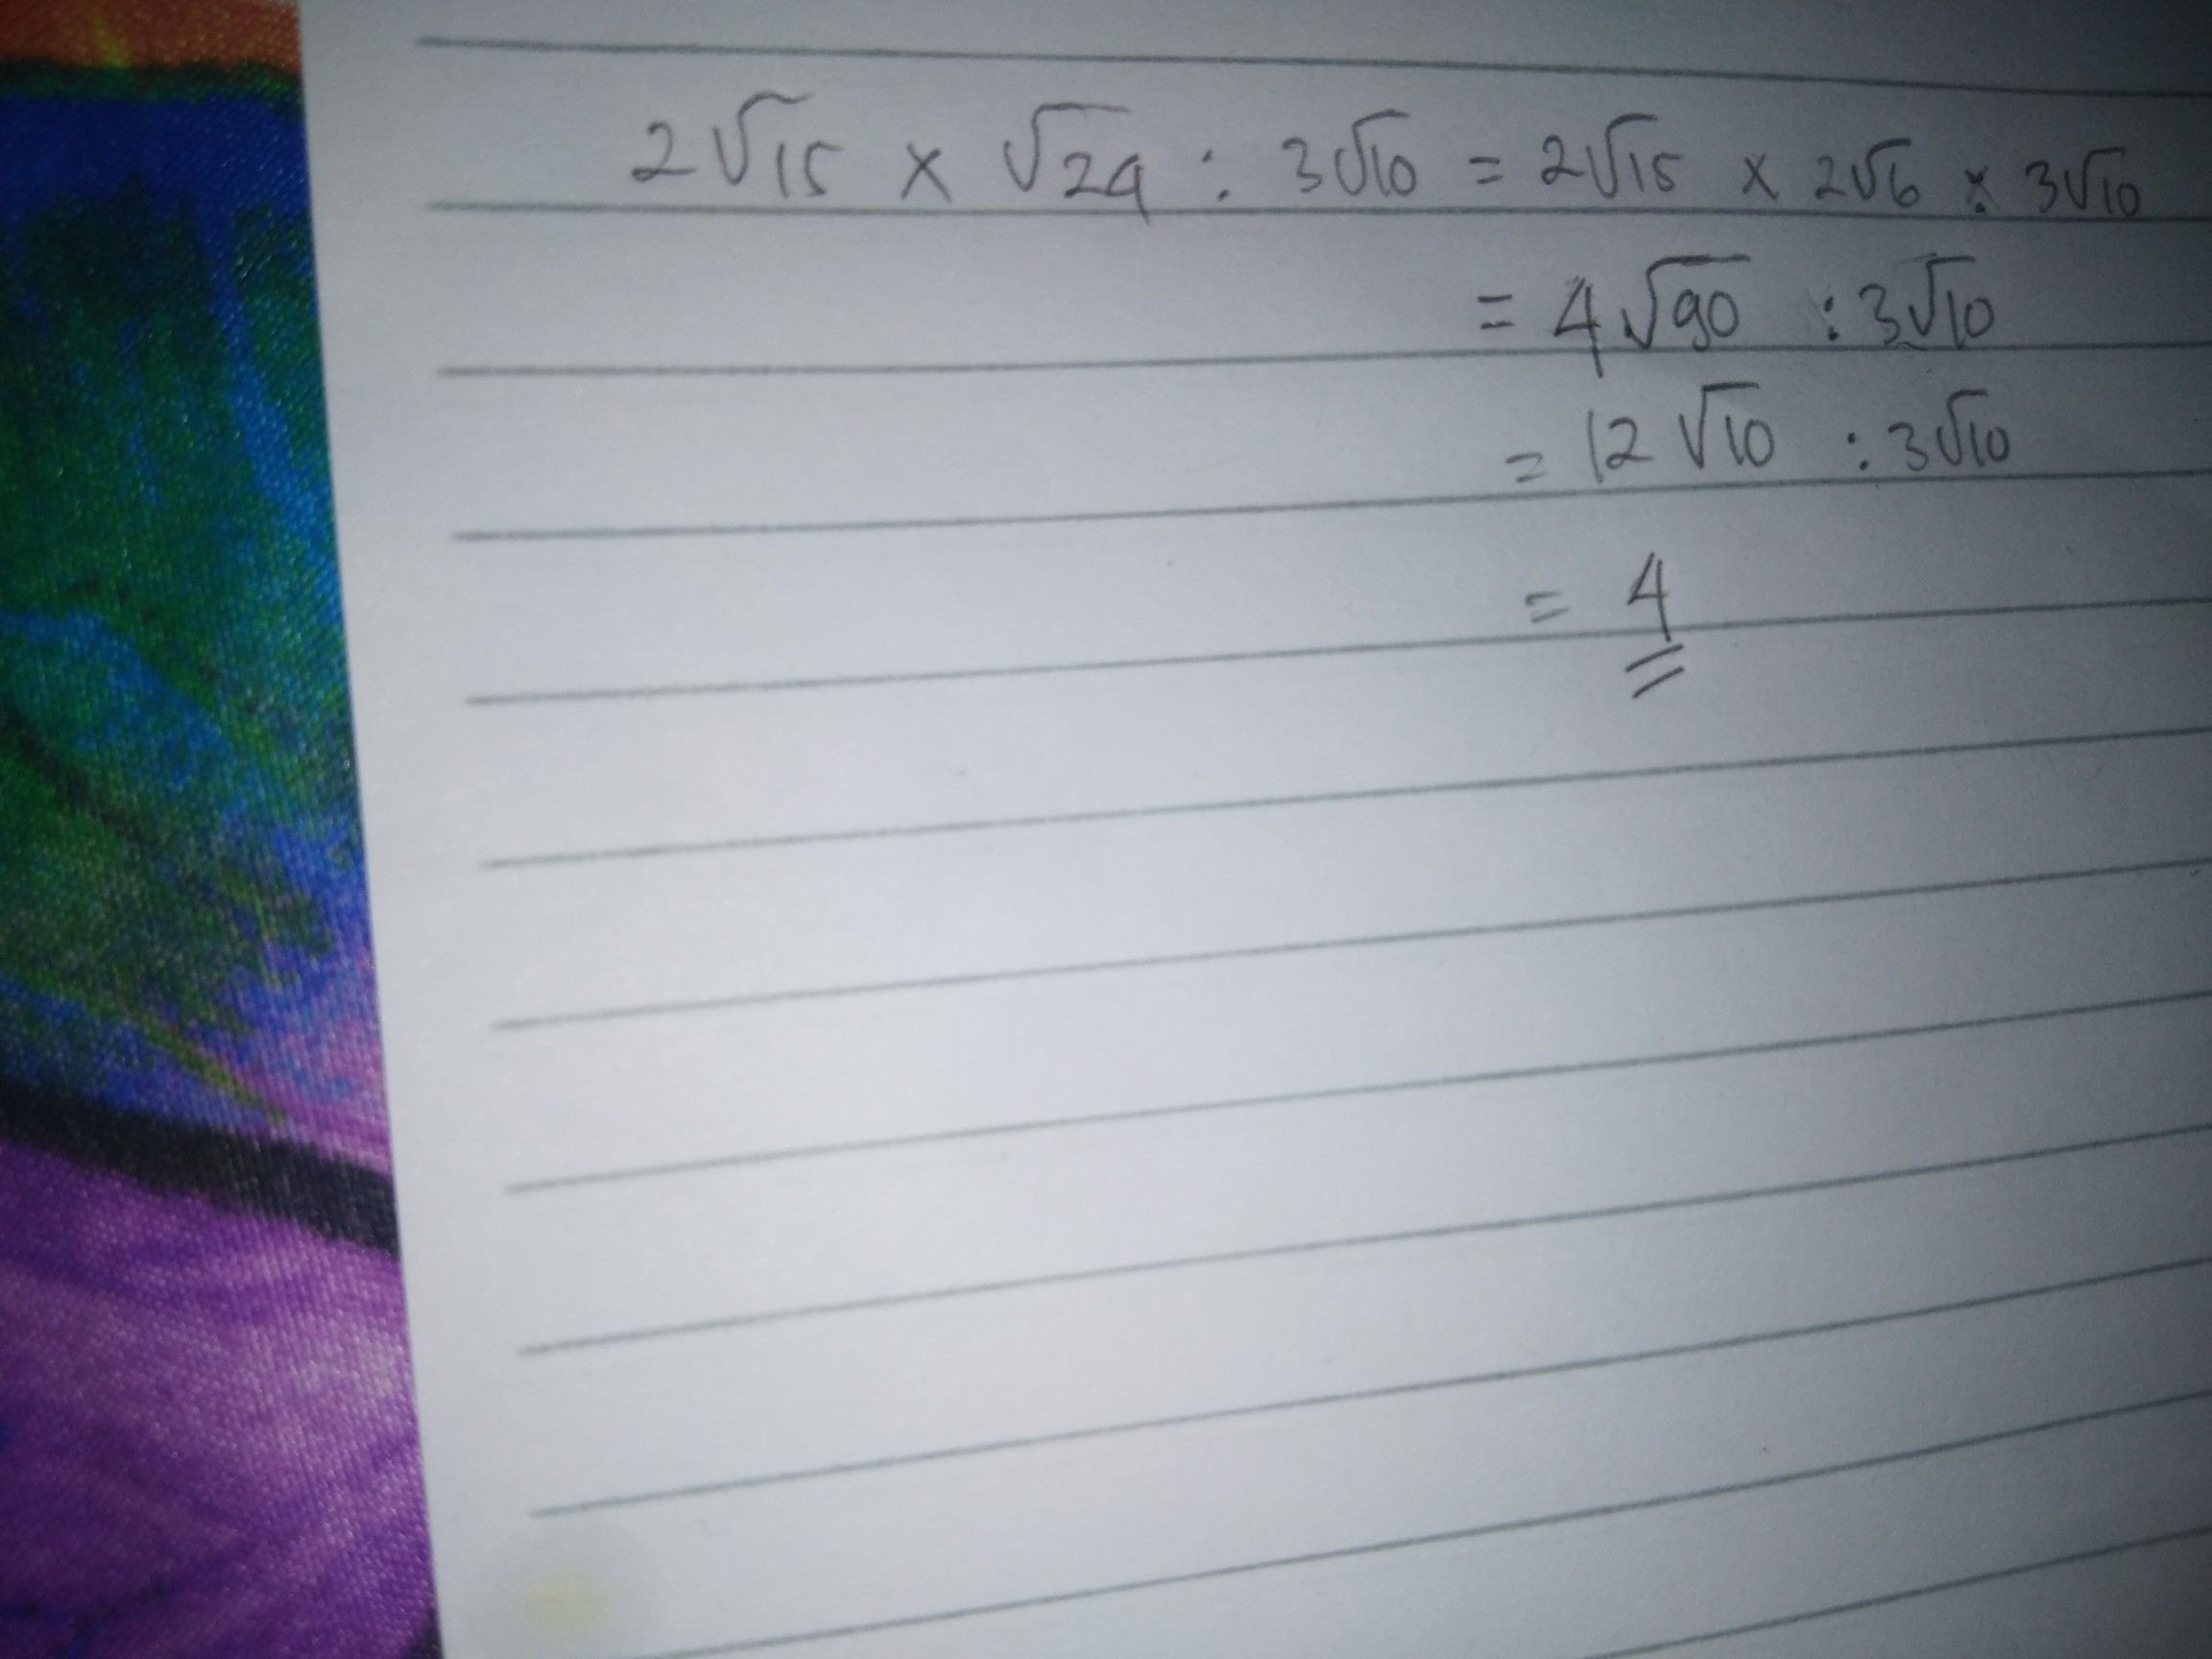 2√15 × √24 : 3√10 = 2√15 × 2√6 : 3√10
= 4√90 : 3√10
= 12√10 : 3√10
= 4